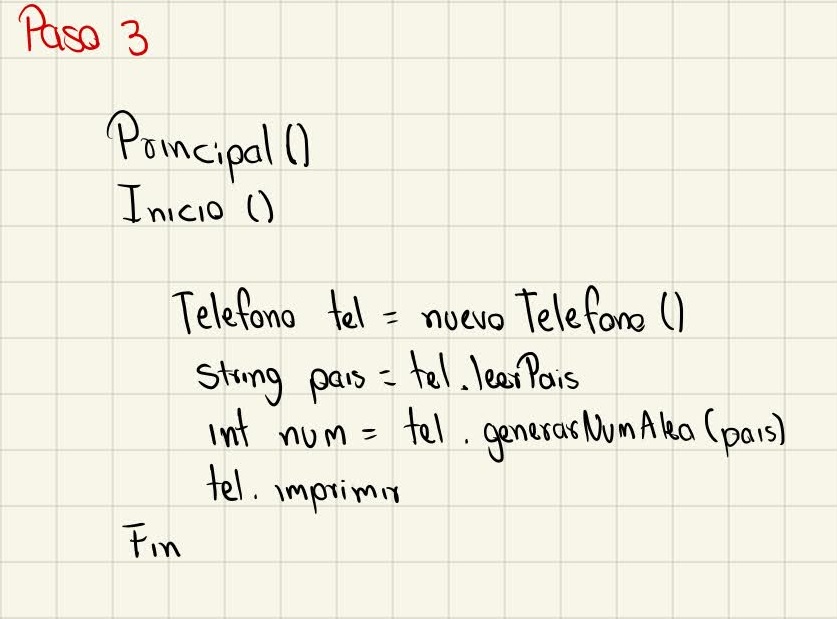 Paso 3
Principal ()
Inicio ()
Telefono tel = nuevo Telefono ()
string pais = tel.leerPais
int num = tel.generarNumAlea (pais)
tel.imprimir
Fin